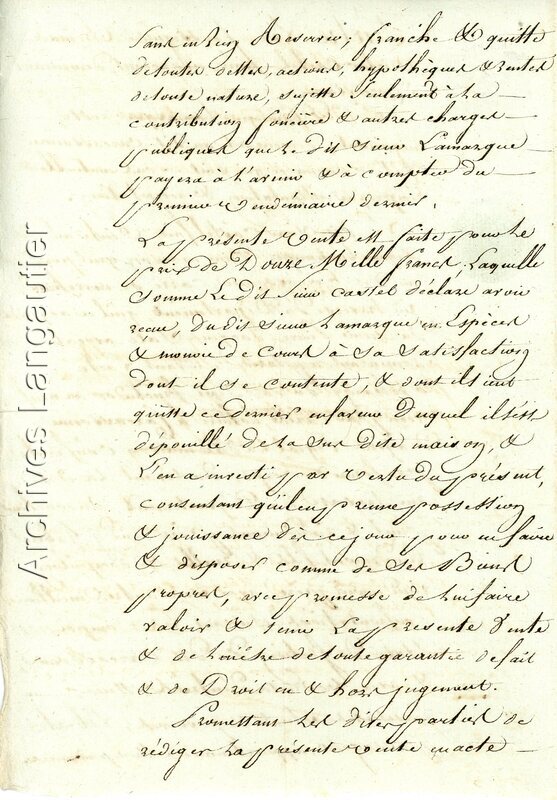 Sans en Rien Reserver, franche & quitte
de toutes dettes, actions, hypothèques & rentes
de toute nature, sujette seulement à la
contribution foncière & autres charges
publiques que le dit sieur Lamarque
payera à l'avenir & à compter du
premier vendémiaire dernier.
La présente vente est faite pour le
prix de Douze Mille francs. Laquelle
somme Le dit sieur castel déclare avoir
reçue, du dit sieur Lamarque en Espèces
& monoie de cours à sa satisfaction
dont il se contente, & dont il tient
quitte ce dernier en faveur Duquel il s'est
dépouillé de la sus dite maison, &
L'en a investi par vertu du présent,
consentant qu'il en prenne possession
& jouissance dès ce jour pour en faire
& disposer comme de ses Biens
propres, avec promesse de lui faire
valoir & tenir La présente Vente
& de lui être de toute garantie de fait
& de Droit en & hors jugement.
Promettant les dites parties de
rédiger la présente vente en acte
Archives Langautier